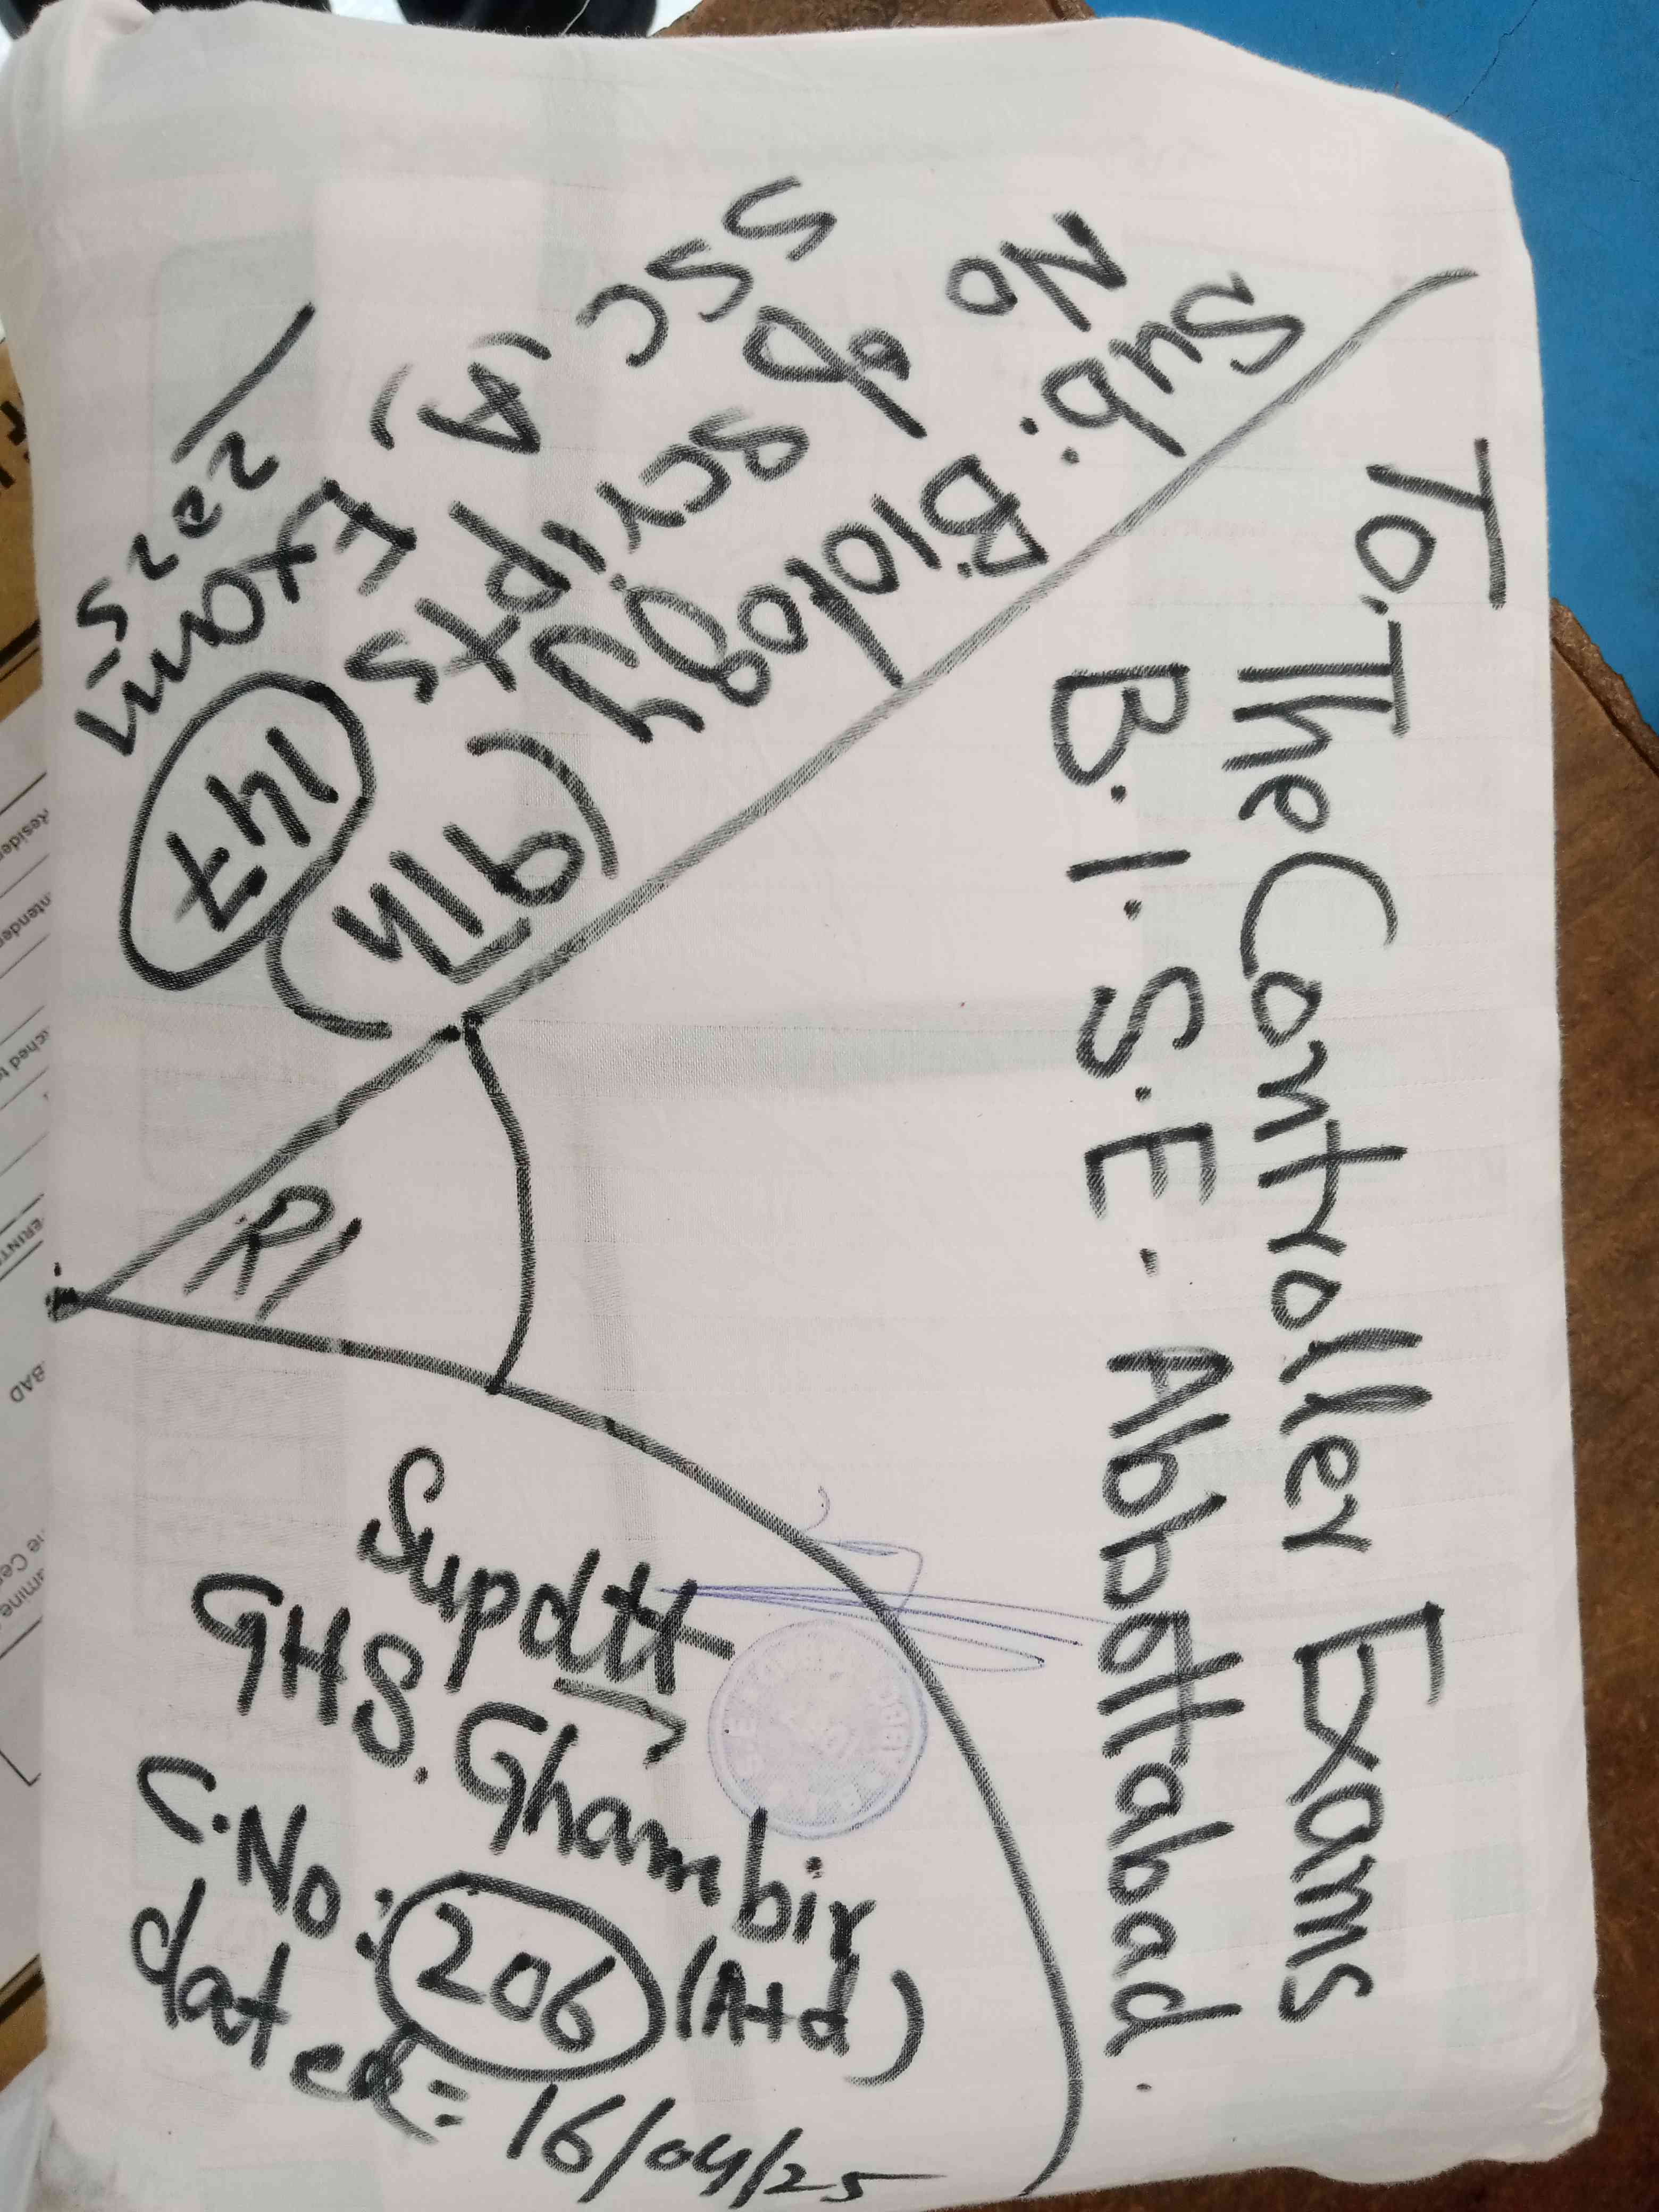 To: The Controller Exams
B.I.S.E. Abbottabad.
Sub: Biology (9th)
No of scripts 147
SSC (A) Exam
2025
R1
Supdtt
GHS. Ghambir
C.No: 206 (Atd)
dated = 16/04/25